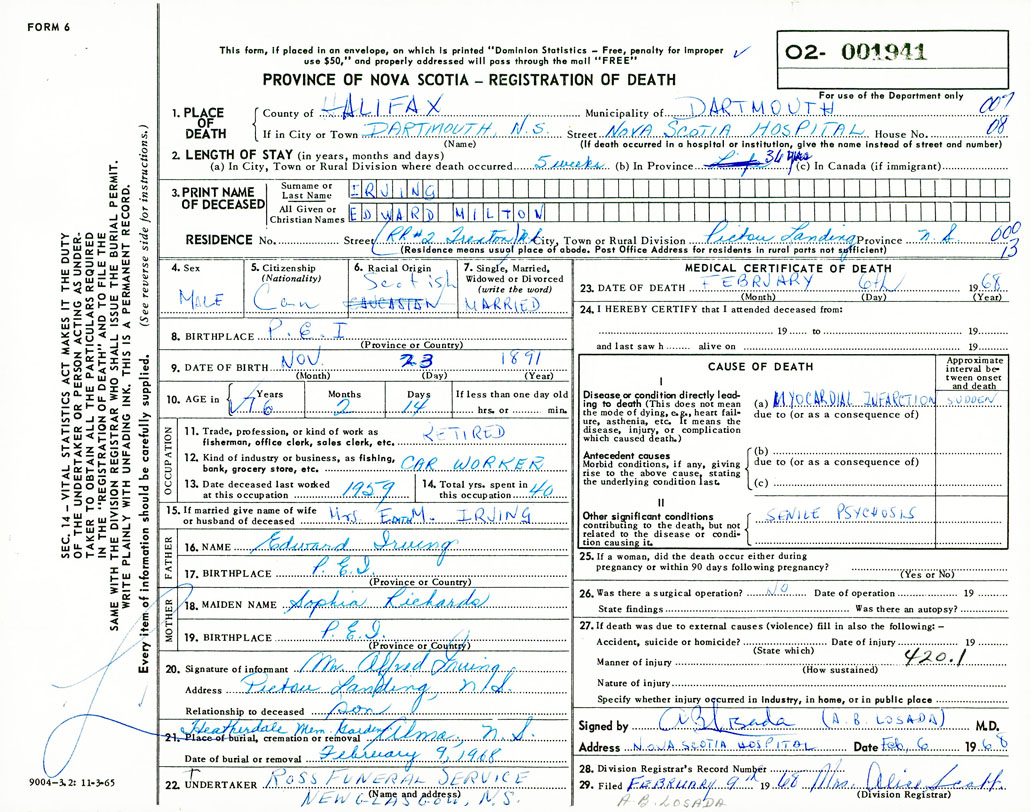 FORM 6
This form, if placed in an envelope, on which is printed "Dominion Statistics – Free, penalty for improper
use $50," and properly addressed will pass through the mail "FREE"
O2- 001941
PROVINCE OF NOVA SCOTIA – REGISTRATION OF DEATH
For use of the Department only
1. PLACE OF DEATH County of HALIFAX Municipality of DARTMOUTH 007
If in City or Town DARTMOUTH, N.S. Street NOVA SCOTIA HOSPITAL House No. 08
(Name) (If death occurred in a hospital or institution, give the name instead of street and number)
2. LENGTH OF STAY (in years, months and days)
(a) In City, Town or Rural Division where death occurred 5 weeks (b) In Province 36 yrs (c) in Canada (if immigrant)
3. PRINT NAME OF DECEASED Surname or Last Name IRVING
All Given or Christian Names EDWARD MILTON
RESIDENCE No. Street RR#2 Trenton City, Town or Rural Division Pictou Landing Province N.S. 000
(Residence means usual place of abode. Post Office Address for residents in rural parts not sufficient) 13
4. Sex MALE
5. Citizenship (Nationality) Can
6. Racial Origin Scotish CAUCASIAN
7. Single, Married, Widowed or Divorced (write the word) MARRIED
8. BIRTHPLACE P.E.I
(Province or Country)
9. DATE OF BIRTH NOV. 23 1891
(Month) (Day) (Year)
10. AGE in Years 76 Months 2 Days 14 If less than one day old
hrs. or min.
OCCUPATION
11. Trade, profession, or kind of work as fisherman, office clerk, sales clerk, etc. RETIRED
12. Kind of industry or business, as fishing, bank, grocery store, etc. CAR WORKER
13. Date deceased last worked at this occupation 1959 14. Total yrs. spent in this occupation 40
15. If married give name of wife or husband of deceased Mrs EDITH M. IRVING
FATHER
16. NAME Edward Irving
17. BIRTHPLACE P.E.I
(Province or Country)
MOTHER
18. MAIDEN NAME Sophia Richards
19. BIRTHPLACE P.E.I.
(Province or Country)
20. Signature of informant Mr Alfred Irving
Address Pictou Landing, N.S.
Relationship to deceased son
Heatherdale Mem. Gardens
21. Place of burial, cremation or removal Alma, N.S.
Date of burial or removal February 9, 1968
22. UNDERTAKER ROSS FUNERAL SERVICE
(Name and address)
NEW GLASGOW, N.S.
MEDICAL CERTIFICATE OF DEATH
23. DATE OF DEATH FEBRUARY 6th 1968
(Month) (Day) (Year)
24. I HEREBY CERTIFY that I attended deceased from:
19 to 19
and last saw h alive on 19
CAUSE OF DEATH
Approximate interval between onset and death
I
Disease or condition directly leading to death (This does not mean the mode of dying, e.g., heart failure, asthenia, etc. It means the disease, injury, or complication which caused death.)
(a) MYOCARDIAL INFARCTION SUDDEN
due to (or as a consequence of)
Antecedent causes
Morbid conditions, if any, giving rise to the above cause, stating the underlying condition last.
(b)
due to (or as a consequence of)
(c)
II
Other significant conditions contributing to the death, but not related to the disease or condition causing it.
SENILE PSYCHOSIS
25. If a woman, did the death occur either during
pregnancy or within 90 days following pregnancy?
(Yes or No)
26. Was there a surgical operation? NO Date of operation 19
State findings Was there an autopsy?
27. If death was due to external causes (violence) fill in also the following: –
Accident, suicide or homicide? Date of injury 19
(State which)
Manner of injury 420.1
(How sustained)
Nature of injury
Specify whether injury occurred in industry, in home, or in public place
Signed by A B Losada (A. B. LOSADA) M.D.
Address NOVA SCOTIA HOSPITAL Date Feb, 6 1968
28. Division Registrar's Record Number
29. Filed FEBRUARY 9th 1968 Mrs. Alice Scott.
(Division Registrar)
A.B. LOSADA
SEC. 14 – VITAL STATISTICS ACT MAKES IT THE DUTY
OF THE UNDERTAKER OR PERSON ACTING AS UNDER-
TAKER TO OBTAIN ALL THE PARTICULARS REQUIRED
IN THE "REGISTRATION OF DEATH" AND TO FILE THE
SAME WITH THE DIVISION REGISTRAR WHO SHALL ISSUE THE BURIAL PERMIT.
WRITE PLAINLY WITH UNFADING INK. THIS IS A PERMANENT RECORD.
Every item of information should be carefully supplied. (See reverse side for instructions.)
9004–3.2: 11-3-65